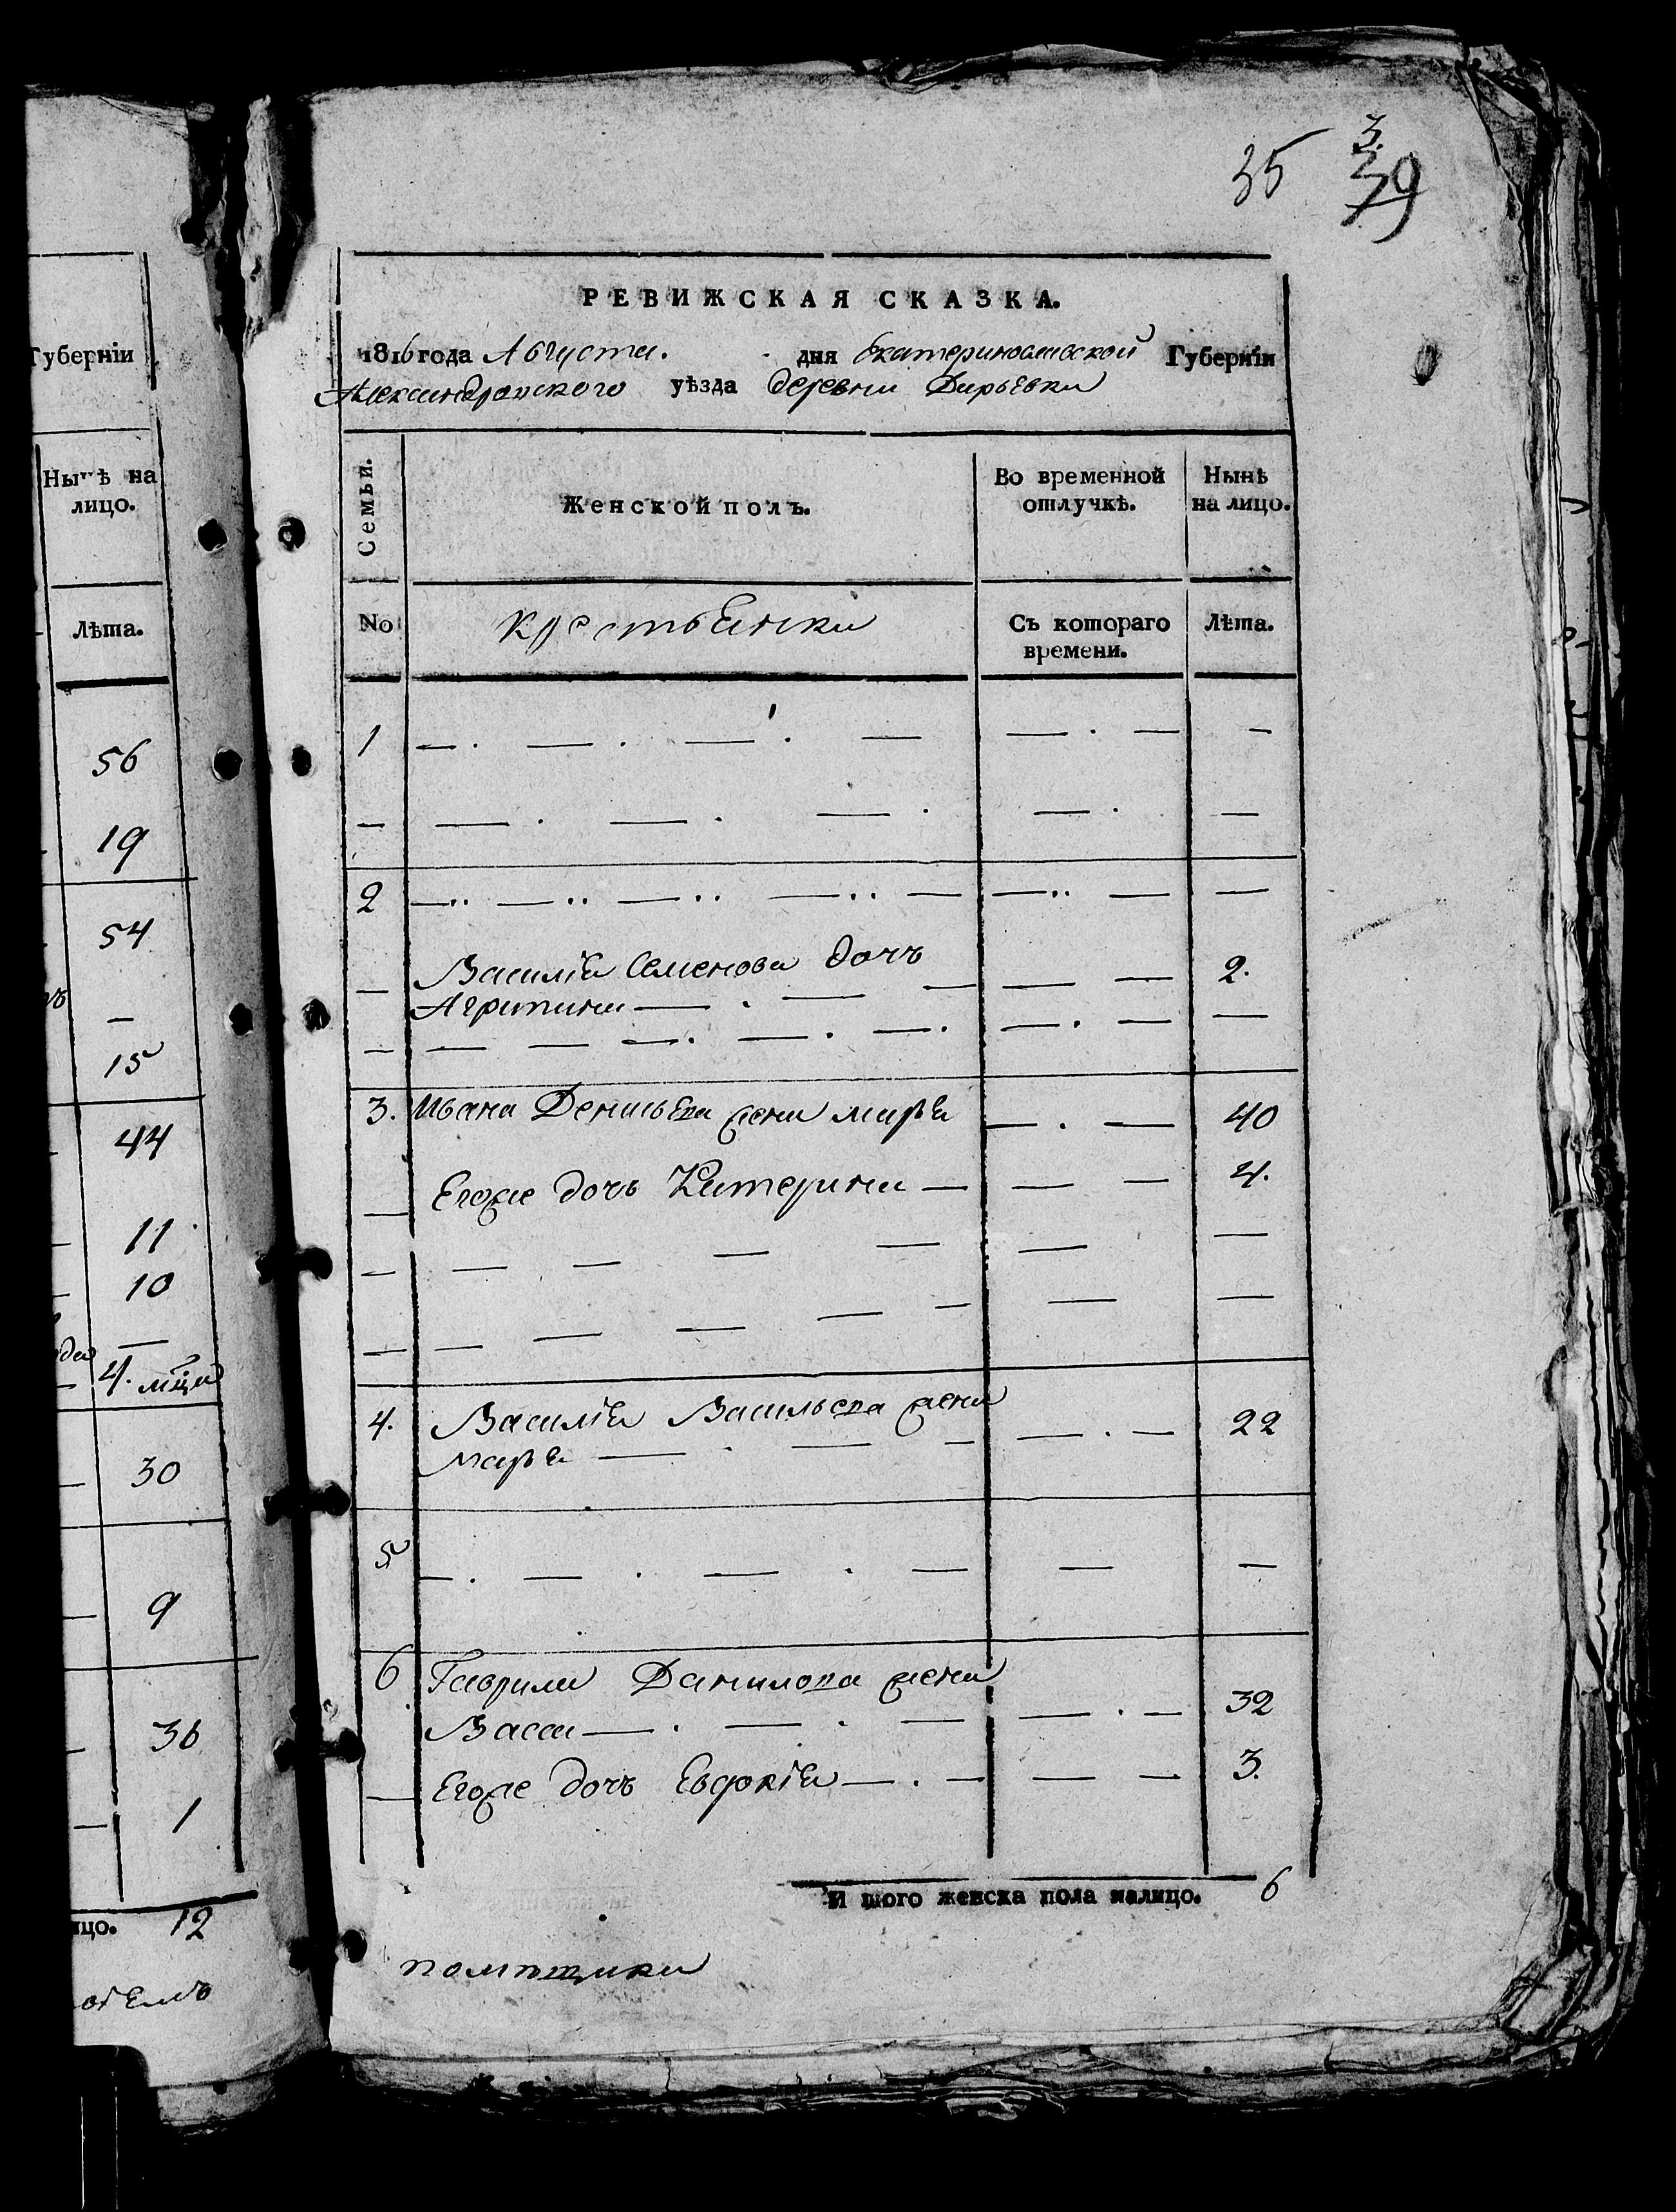 Губерніи
Нынѣ на
лицо.
Лѣта.
56
19
54
—
15
44
11
10
—
4. мца
30
9
36
1
цо. 12
35
3.
39
РЕВИЖСКАЯ СКАЗКА.
1816 года Августа. дня Екатеринославской Губерніи
Александровского уѣзда деревни Дарьевки
Семьи. Женской полъ. Во временной отлучкѣ. Нынѣ на лицо.
No крестьянки Съ котораго времени. Лѣта.
1 — . — . — . — — . — —
— — . — . — . — . —
2 — .. — .. — .. — .. — — .. — —
— Василія Семенова дочъ — — 2.
Агрипина — . — —
— — — — . — . — . — . — —
3. Ивана Денисьева жена марья — . — 40
— Егоже дочь Катерина — — — 4.
— — — — — — —
— — — — — — — —
4. Василія Васильева жена — . — 22
марья — . — —
5 — . — . — . — — —
6 Гаврила Данилова жена
Васса — . — . — — . — 32
— Егоже дочъ Евдокія — . — — — 3.
И того женска пола налицо. 6
помещика